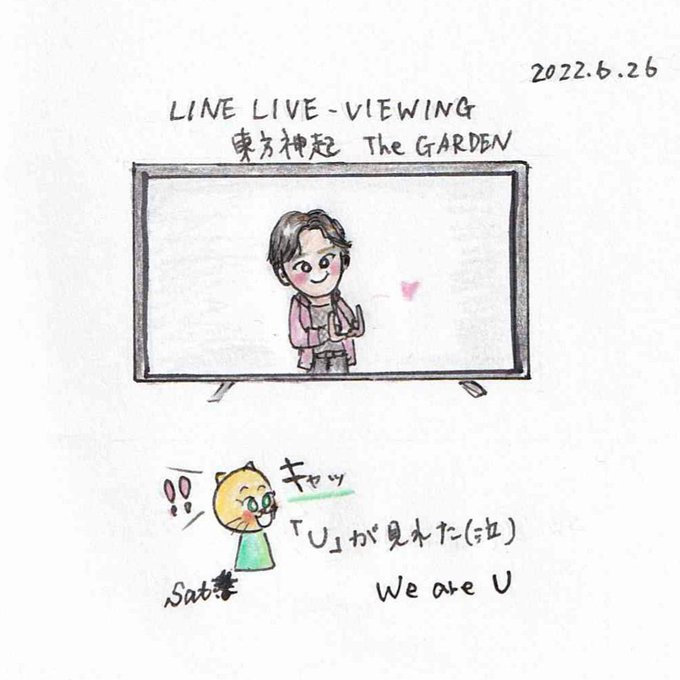 2022.6.26
LINE LIVE-VIEWING
東方神起 The GARDEN
キャッ
!!
「U」が見れた(泣)
We are U